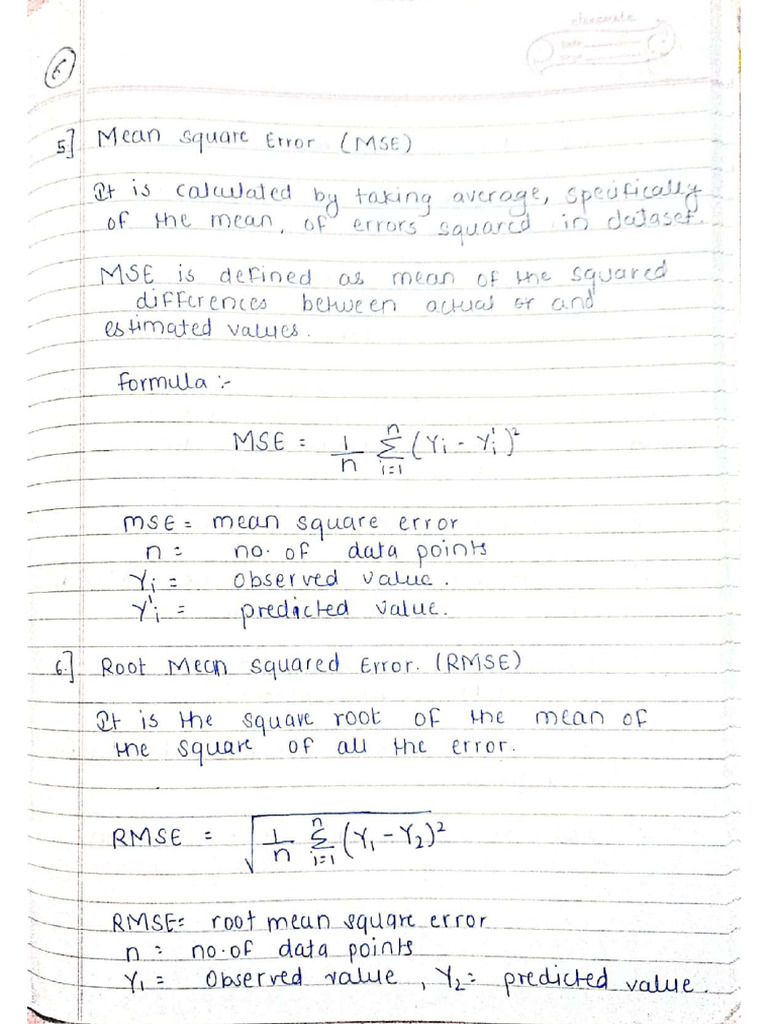 classmate
Date
Page
6
5] Mean Square Error (MSE)
It is calculated by taking average, specifically
of the mean, of errors squared in dataset.
MSE is defined as mean of the squared
differences between actual or and
estimated values.
formula :-
MSE = 1/n Σ_{i=1}^{n} (Yi - Y'i)²
MSE = mean square error
n = no. of data points
Yi = observed value.
Y'i = predicted value.
6.] Root Mean Squared Error. (RMSE)
It is the square root of the mean of
the square of all the error.
RMSE = √(1/n Σ_{i=1}^{n} (Y₁ - Y₂)²)
RMSE = root mean square error
n = no. of data points
Y₁ = Observed value, Y₂ = predicted value.